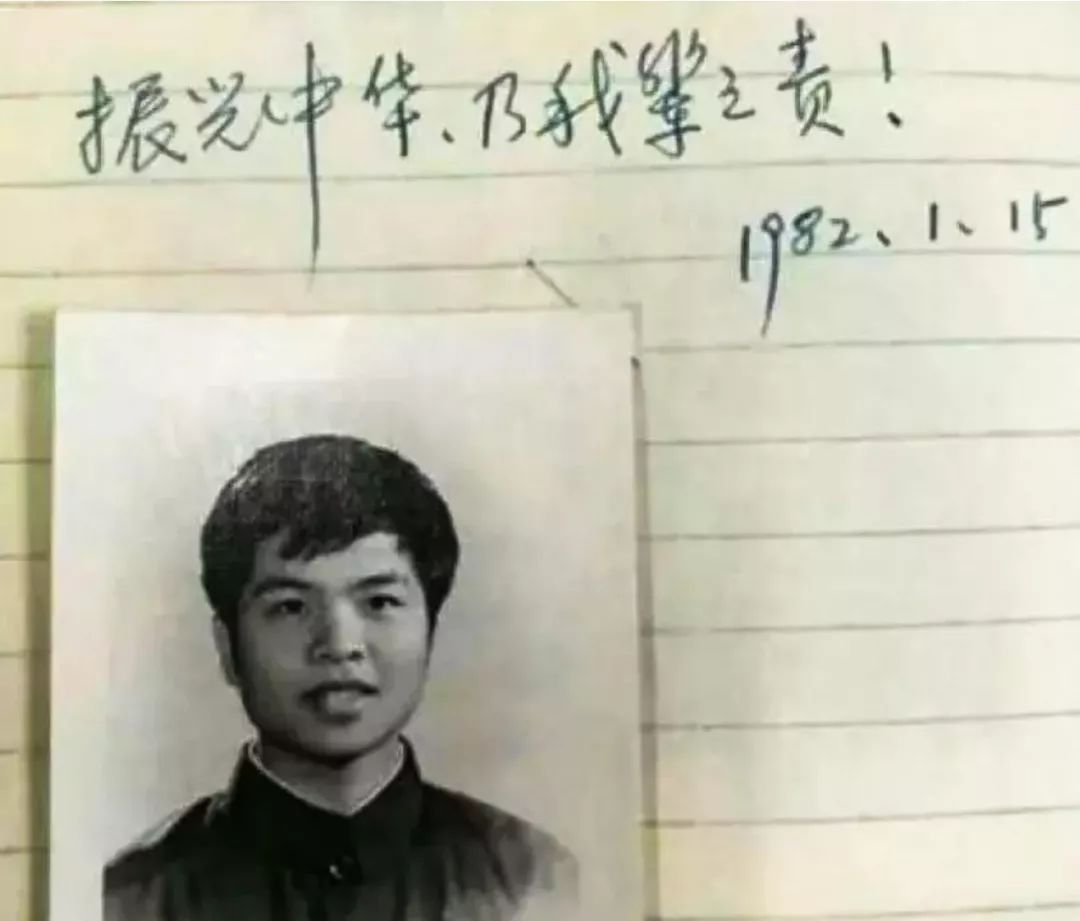 振兴中华、乃我辈之责！
1982、1、15